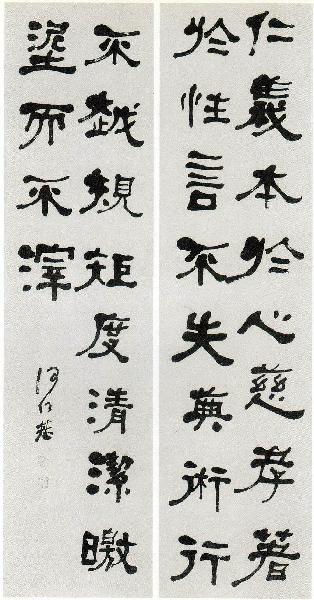 仁義本於心慈孝著
於性言不失典術行
不越規矩度清潔曒
埿而不滓